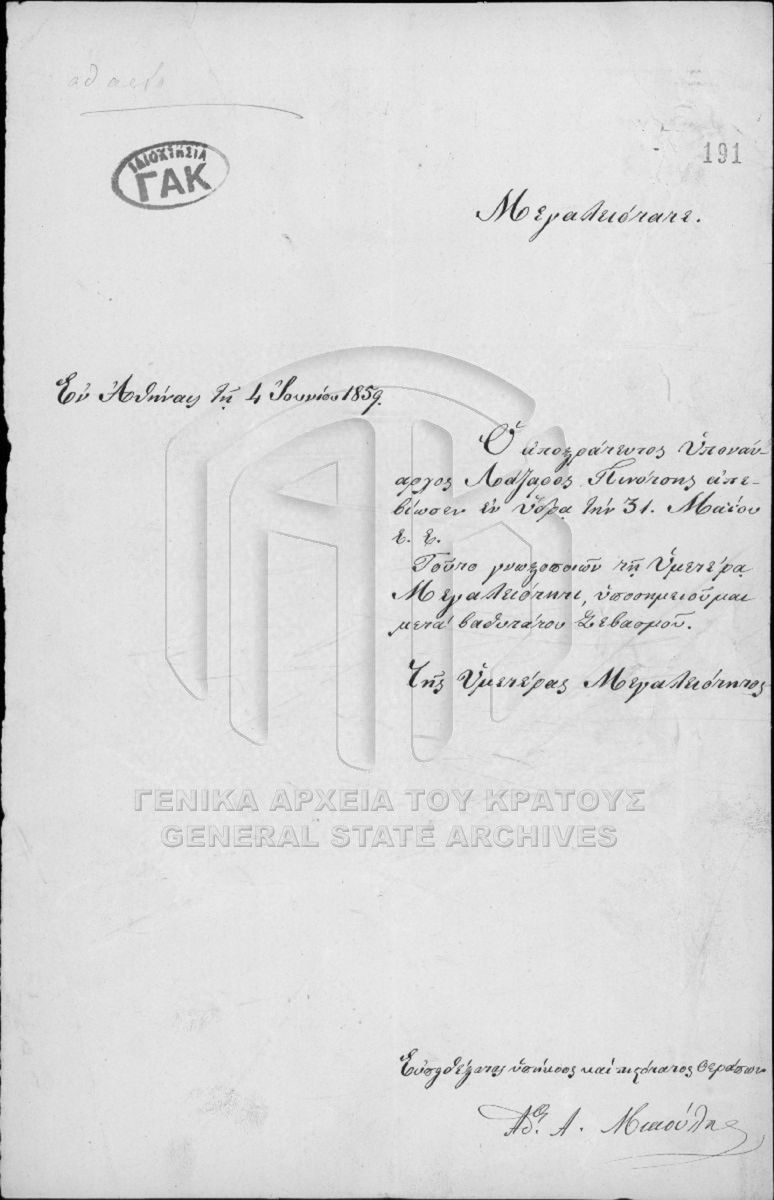 ΙΔΙΟΚΤΗΣΙΑ
ΓΑΚ
191
Μεγαλειότατε.
Ἐν Ἀθήναις τῇ 4 Ἰουνίου 1859.
Ὁ ἀποστράτευτος Ὑποναύ-
αρχος Λάζαρος Πινότσης ἀπε-
βίωσεν ἐν Ὕδρᾳ τὴν 31. Μαΐου
ἐ. ἔ.
Τοῦτο γνωστοποιῶν τῇ Ὑμετέρᾳ
Μεγαλειότητι, ὑποσημειοῦμαι
μετὰ βαθυτάτου Σεβασμοῦ.
Τῆς Ὑμετέρας Μεγαλειότητος
ΓΕΝΙΚΑ ΑΡΧΕΙΑ ΤΟΥ ΚΡΑΤΟΥΣ
GENERAL STATE ARCHIVES
Εὐπειθέστατος ὑπήκοος καὶ πιστότατος θεράπων
Α. Μιαούλης